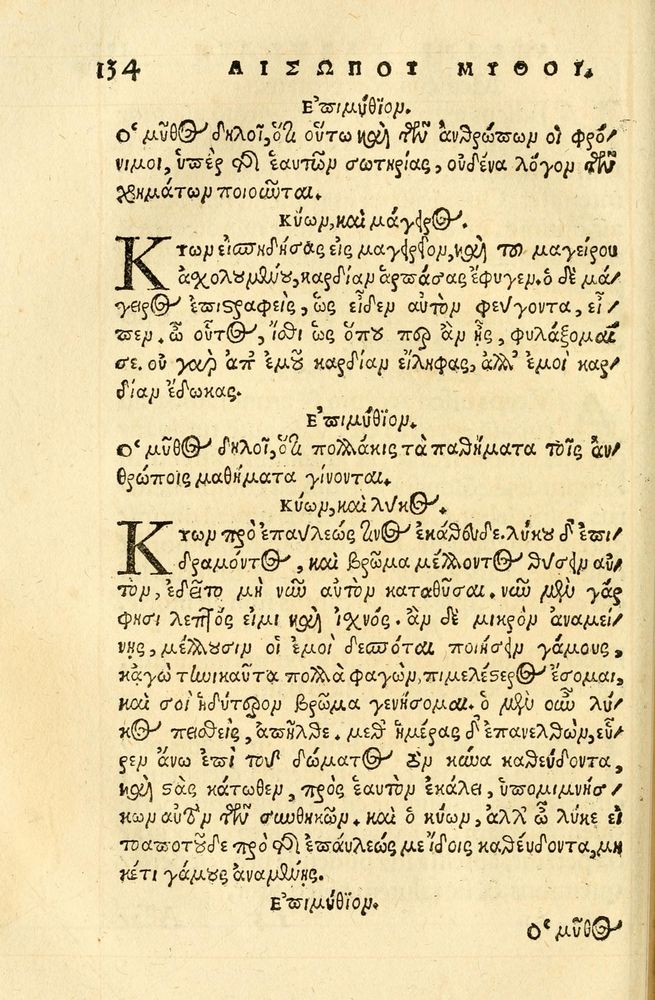 134 ΑΙΣΩΠΟΥ ΜΥΘΟΙ.
Ἐπιμύθιον.
Ὁ μῦθος δηλοῖ, ὅτι οὕτω καὶ τῶν ἀνθρώπων οἱ φρό/
νιμοι, ὑπὲρ τῆς ἑαυτῶν σωτηρίας, οὐδένα λόγον τῶν
χρημάτων ποιοῦνται.
Κύων, καὶ μάγειρος.
ΚΥων εἰσπηδήσας εἰς μαγειρεῖον, καὶ τοῦ μαγείρου
ἀσχολουμένου, καρδίαν ἁρπάσας ἔφυγεν. ὁ δὲ μά/
γειρος ἐπιστραφεὶς, ὡς εἶδεν αὐτὸν φεύγοντα, εἶ/
πεν. ὦ οὗτος, ἴσθι ὡς ὅπου περ ἂν ᾖς, φυλάξομαί
σε. οὐ γὰρ ἀπ' ἐμοῦ καρδίαν εἴληφας, ἀλλ' ἐμοὶ καρ/
δίαν ἔδωκας.
Ἐπιμύθιον.
Ὁ μῦθος δηλοῖ, ὅτι πολλάκις τὰ παθήματα τοῖς ἀν/
θρώποις μαθήματα γίνονται.
Κύων, καὶ λύκος.
ΚΥων πρὸ ἐπαύλεώς τινος ἐκάθευδε. λύκου δ' ἐπι/
δραμόντος, καὶ βρῶμα μέλλοντος θύσειν αὐ/
τὸν, ἐδεῖτο μὴ νῦν αὐτὸν καταθῦσαι. νῦν μὲν γάρ
φησι λεπτός εἰμι καὶ ἰσχνός. ἂν δὲ μικρὸν ἀναμεί/
νῃς, μέλλουσιν οἱ ἐμοὶ δεσπόται ποιήσειν γάμους,
κἀγὼ τηνικαῦτα πολλὰ φαγὼν, πιμελέστερος ἔσομαι,
καὶ σοὶ ἡδύτερον βρῶμα γενήσομαι. ὁ μὲν οὖν λύ/
κος πεισθεὶς, ἀπῆλθε. μεθ' ἡμέρας δ' ἐπανελθὼν, εὗ/
ρεν ἄνω ἐπὶ τοῦ δώματος τὸν κύνα καθεύδοντα,
καὶ στὰς κάτωθεν, πρὸς ἑαυτὸν ἐκάλει, ὑπομιμνήσ/
κων αὐτὸν τῶν συνθηκῶν. καὶ ὁ κύων, ἀλλ' ὦ λύκε εἰ
τὸ ἀπὸ τοῦδε πρὸ τῆς ἐπαύλεώς με ἴδοις καθεύδοντα, μη
κέτι γάμους ἀναμένῃς.
Ἐπιμύθιον.
Ὁ μῦθος